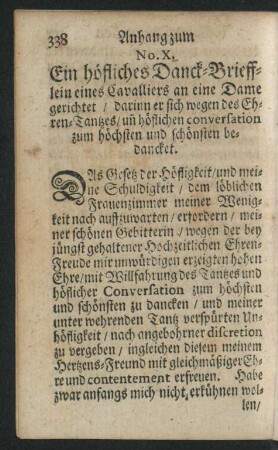 338 Anhang zum
No. X.
Ein höfliches Danck-Brieff-
lein eines Cavalliers an eine Dame
gerichtet / darinn er sich wegen des Eh-
ren-Tantzes / uñ höflichen conversation
zum höchsten und schönsten be-
dancket.
DAs Gesetz der Höfligkeit / und mei-
ne Schuldigkeit / dem löblichen
Frauenzimmer meiner Wenig-
keit nach auffzuwarten / erfordern / mei-
ner schönen Gebitterin / wegen der bey
jüngst gehaltener Hochzeitlichen Ehren-
Freude mir unwürdigen erzeigten hohen
Ehre / mit Willfahrung des Tantzes und
höflicher Conversation zum höchsten
und schönsten zu dancken / und meiner
unter wehrenden Tantz verspürten Un-
höfligkeit / nach angebohrner discretion
zu vergeben / ingleichen diesem meinem
Hertzens-Freund mit gleichmäßiger Eh-
re und contentement erfreuen. Habe
zwar anfangs mich nicht erkühnen wol-
len /